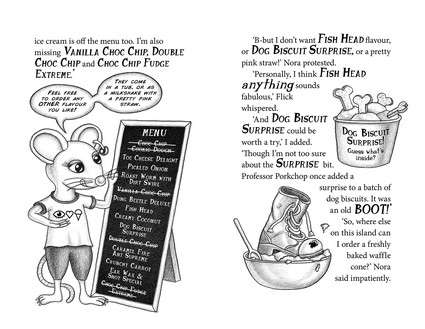 ice cream is off the menu too. I'm also
missing VANILLA CHOC CHIP, DOUBLE
CHOC CHIP and CHOC CHIP FUDGE
EXTREME.'
FEEL FREE
TO ORDER ANY
OTHER FLAVOUR
YOU LIKE!
THEY COME
IN A TUB, OR AS
A MILKSHAKE WITH
A PRETTY PINK
STRAW.
MENU
CHOC CHIP
COOKIE DOUGH
TOE CHEESE DELIGHT
PICKLED ONION
ROAST WORM WITH
DIRT SWIRL
VANILLA CHOC CHIP
DUNG BEETLE DELUXE
FISH HEAD
CREAMY COCONUT
DOG BISCUIT
SURPRISE
DOUBLE CHOC CHIP
CARAMEL FIRE
ANT SUPREME
CRUNCHY CARROT
EAR WAX &
SNOT SPECIAL
CHOC CHIP FUDGE
EXTREME
'B-but I don't want FISH HEAD flavour,
or DOG BISCUIT SURPRISE, or a pretty
pink straw!' Nora protested.
'Personally, I think FISH HEAD
anything sounds
fabulous,' Flick
whispered.
'And DOG BISCUIT
SURPRISE could be
worth a try,' I added.
'Though I'm not too sure
about the SURPRISE bit.
Professor Porkchop once added a
surprise to a batch of
dog biscuits. It was
an old BOOT!'
'So, where else
on this island can
I order a freshly
baked waffle
cone?' Nora
said impatiently.
DOG BISCUIT
SURPRISE!
Guess what's
inside?